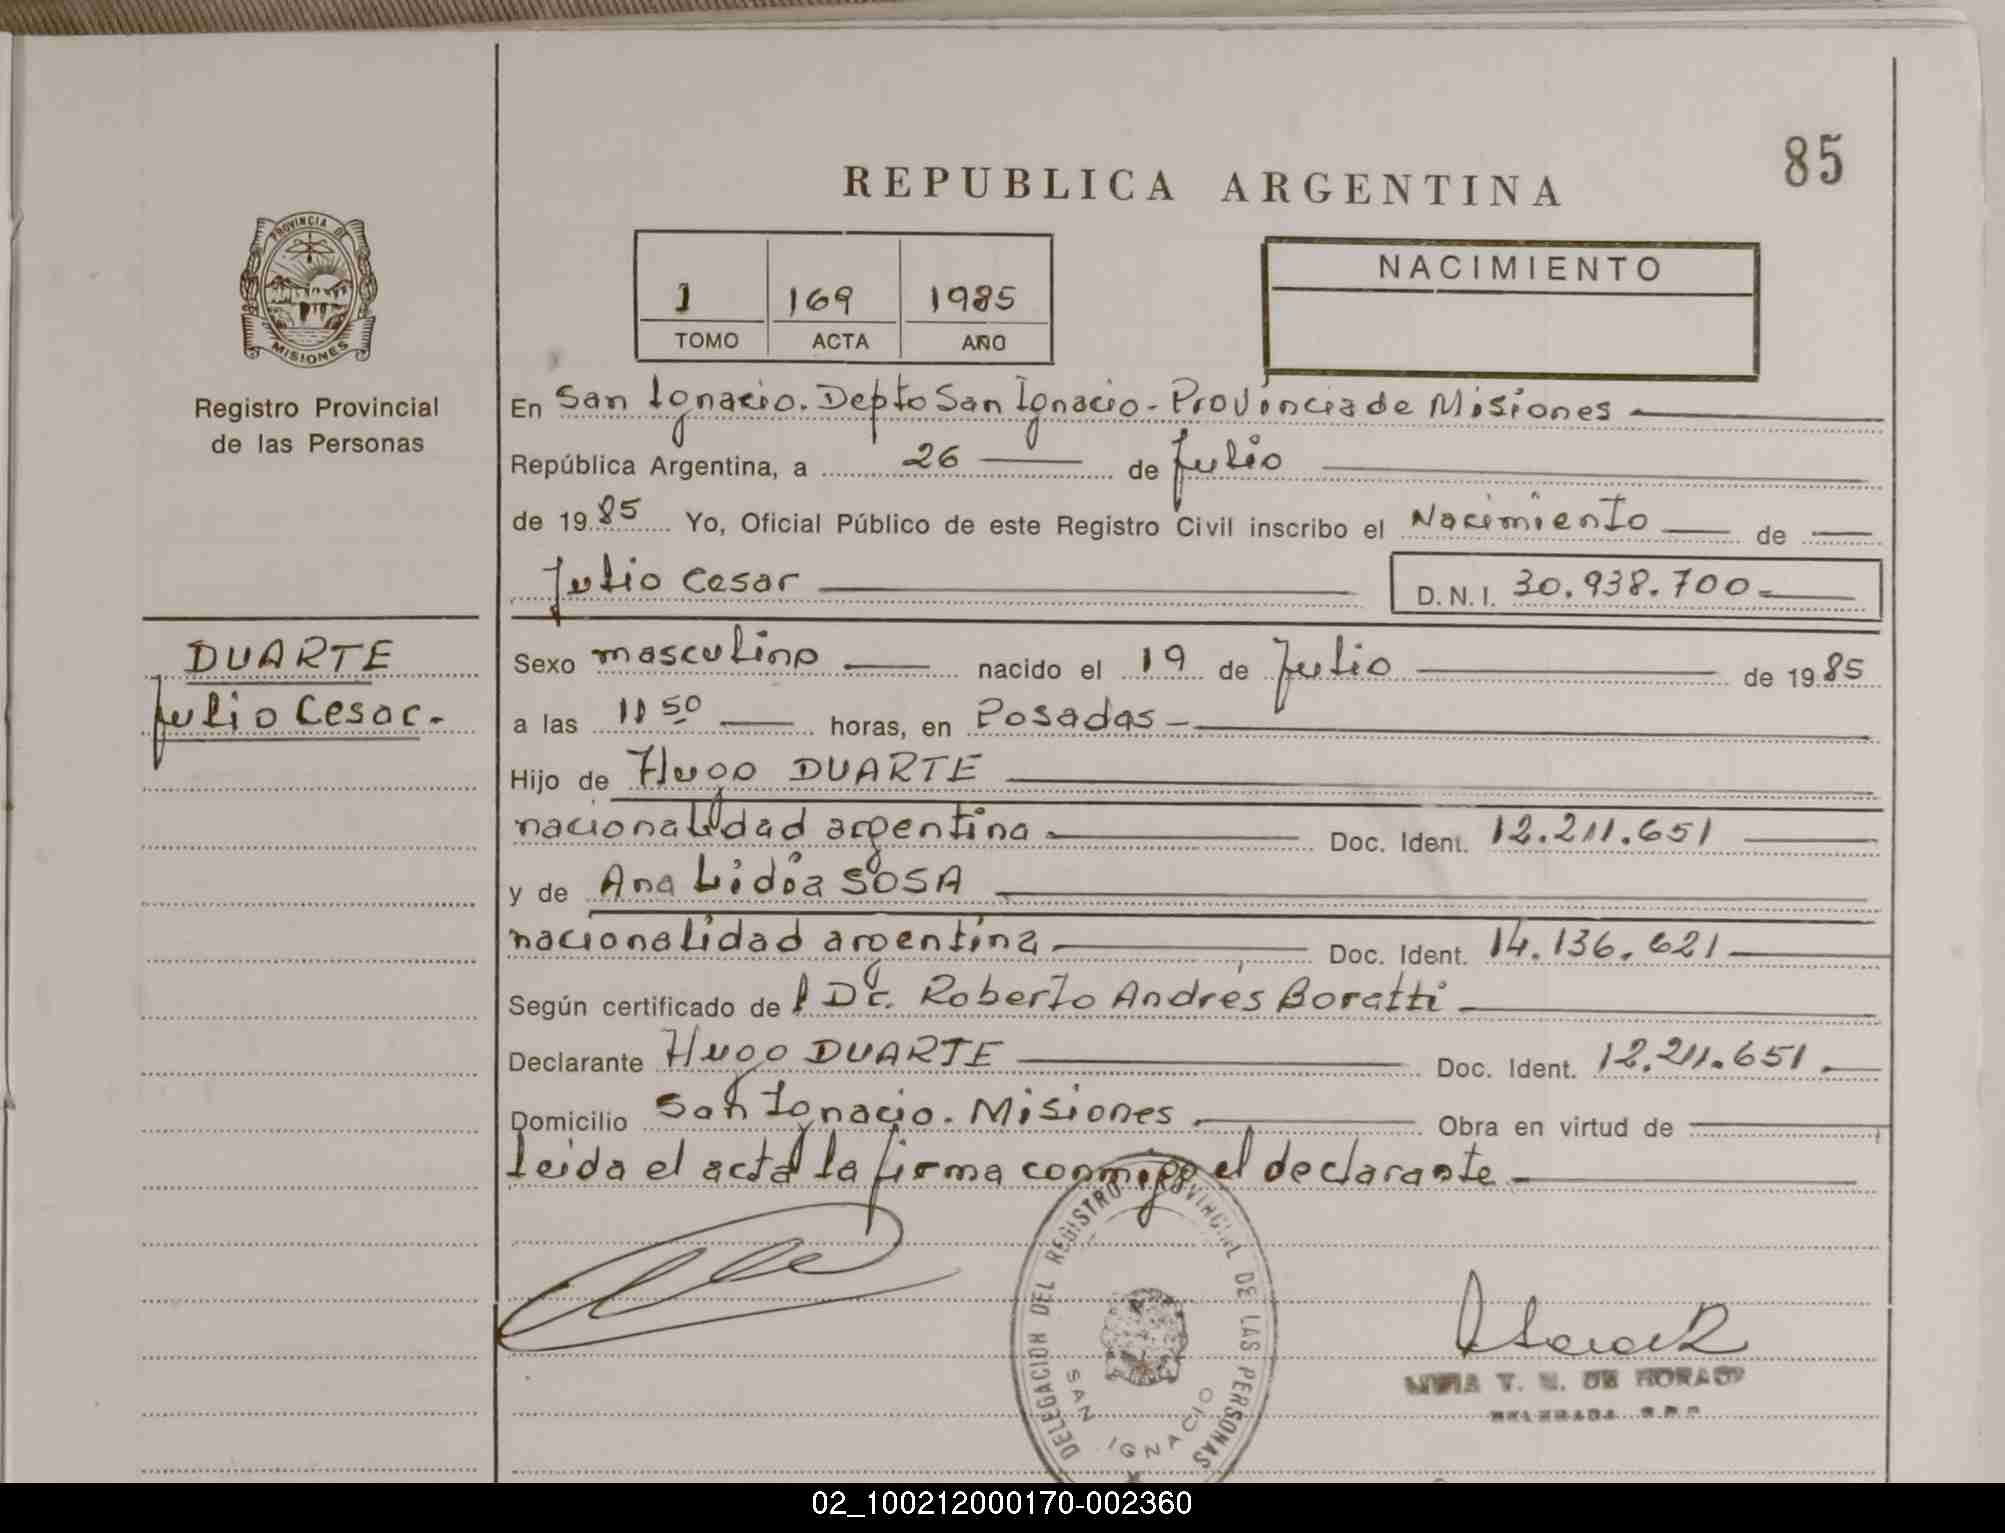 85
REPUBLICA ARGENTINA
PROVINCIA DE
MISIONES
Registro Provincial
de las Personas
1 169 1985
TOMO ACTA AÑO
NACIMIENTO
En San Ignacio. Depto San Ignacio - Provincia de Misiones
República Argentina, a 26 de Julio
de 1985 Yo, Oficial Público de este Registro Civil inscribo el Nacimiento de
Julio Cesar D.N.I. 30.938.700
DUARTE
Julio Cesar.
Sexo masculino nacido el 19 de Julio de 1985
a las 11 50 horas, en Posadas
Hijo de Hugo DUARTE
nacionalidad argentina Doc. Ident. 12.211.651
y de Ana Lidia SOSA
nacionalidad argentina Doc. Ident. 14.136.621
Según certificado del Dr. Roberto Andrés Boratti
Declarante Hugo DUARTE Doc. Ident. 12.211.651
Domicilio San Ignacio. Misiones Obra en virtud de
Leida el acta la firma conmigo el declarante
DELEGACION DEL REGISTRO PROVINCIAL DE LAS PERSONAS
SAN IGNACIO
02_100212000170-002360